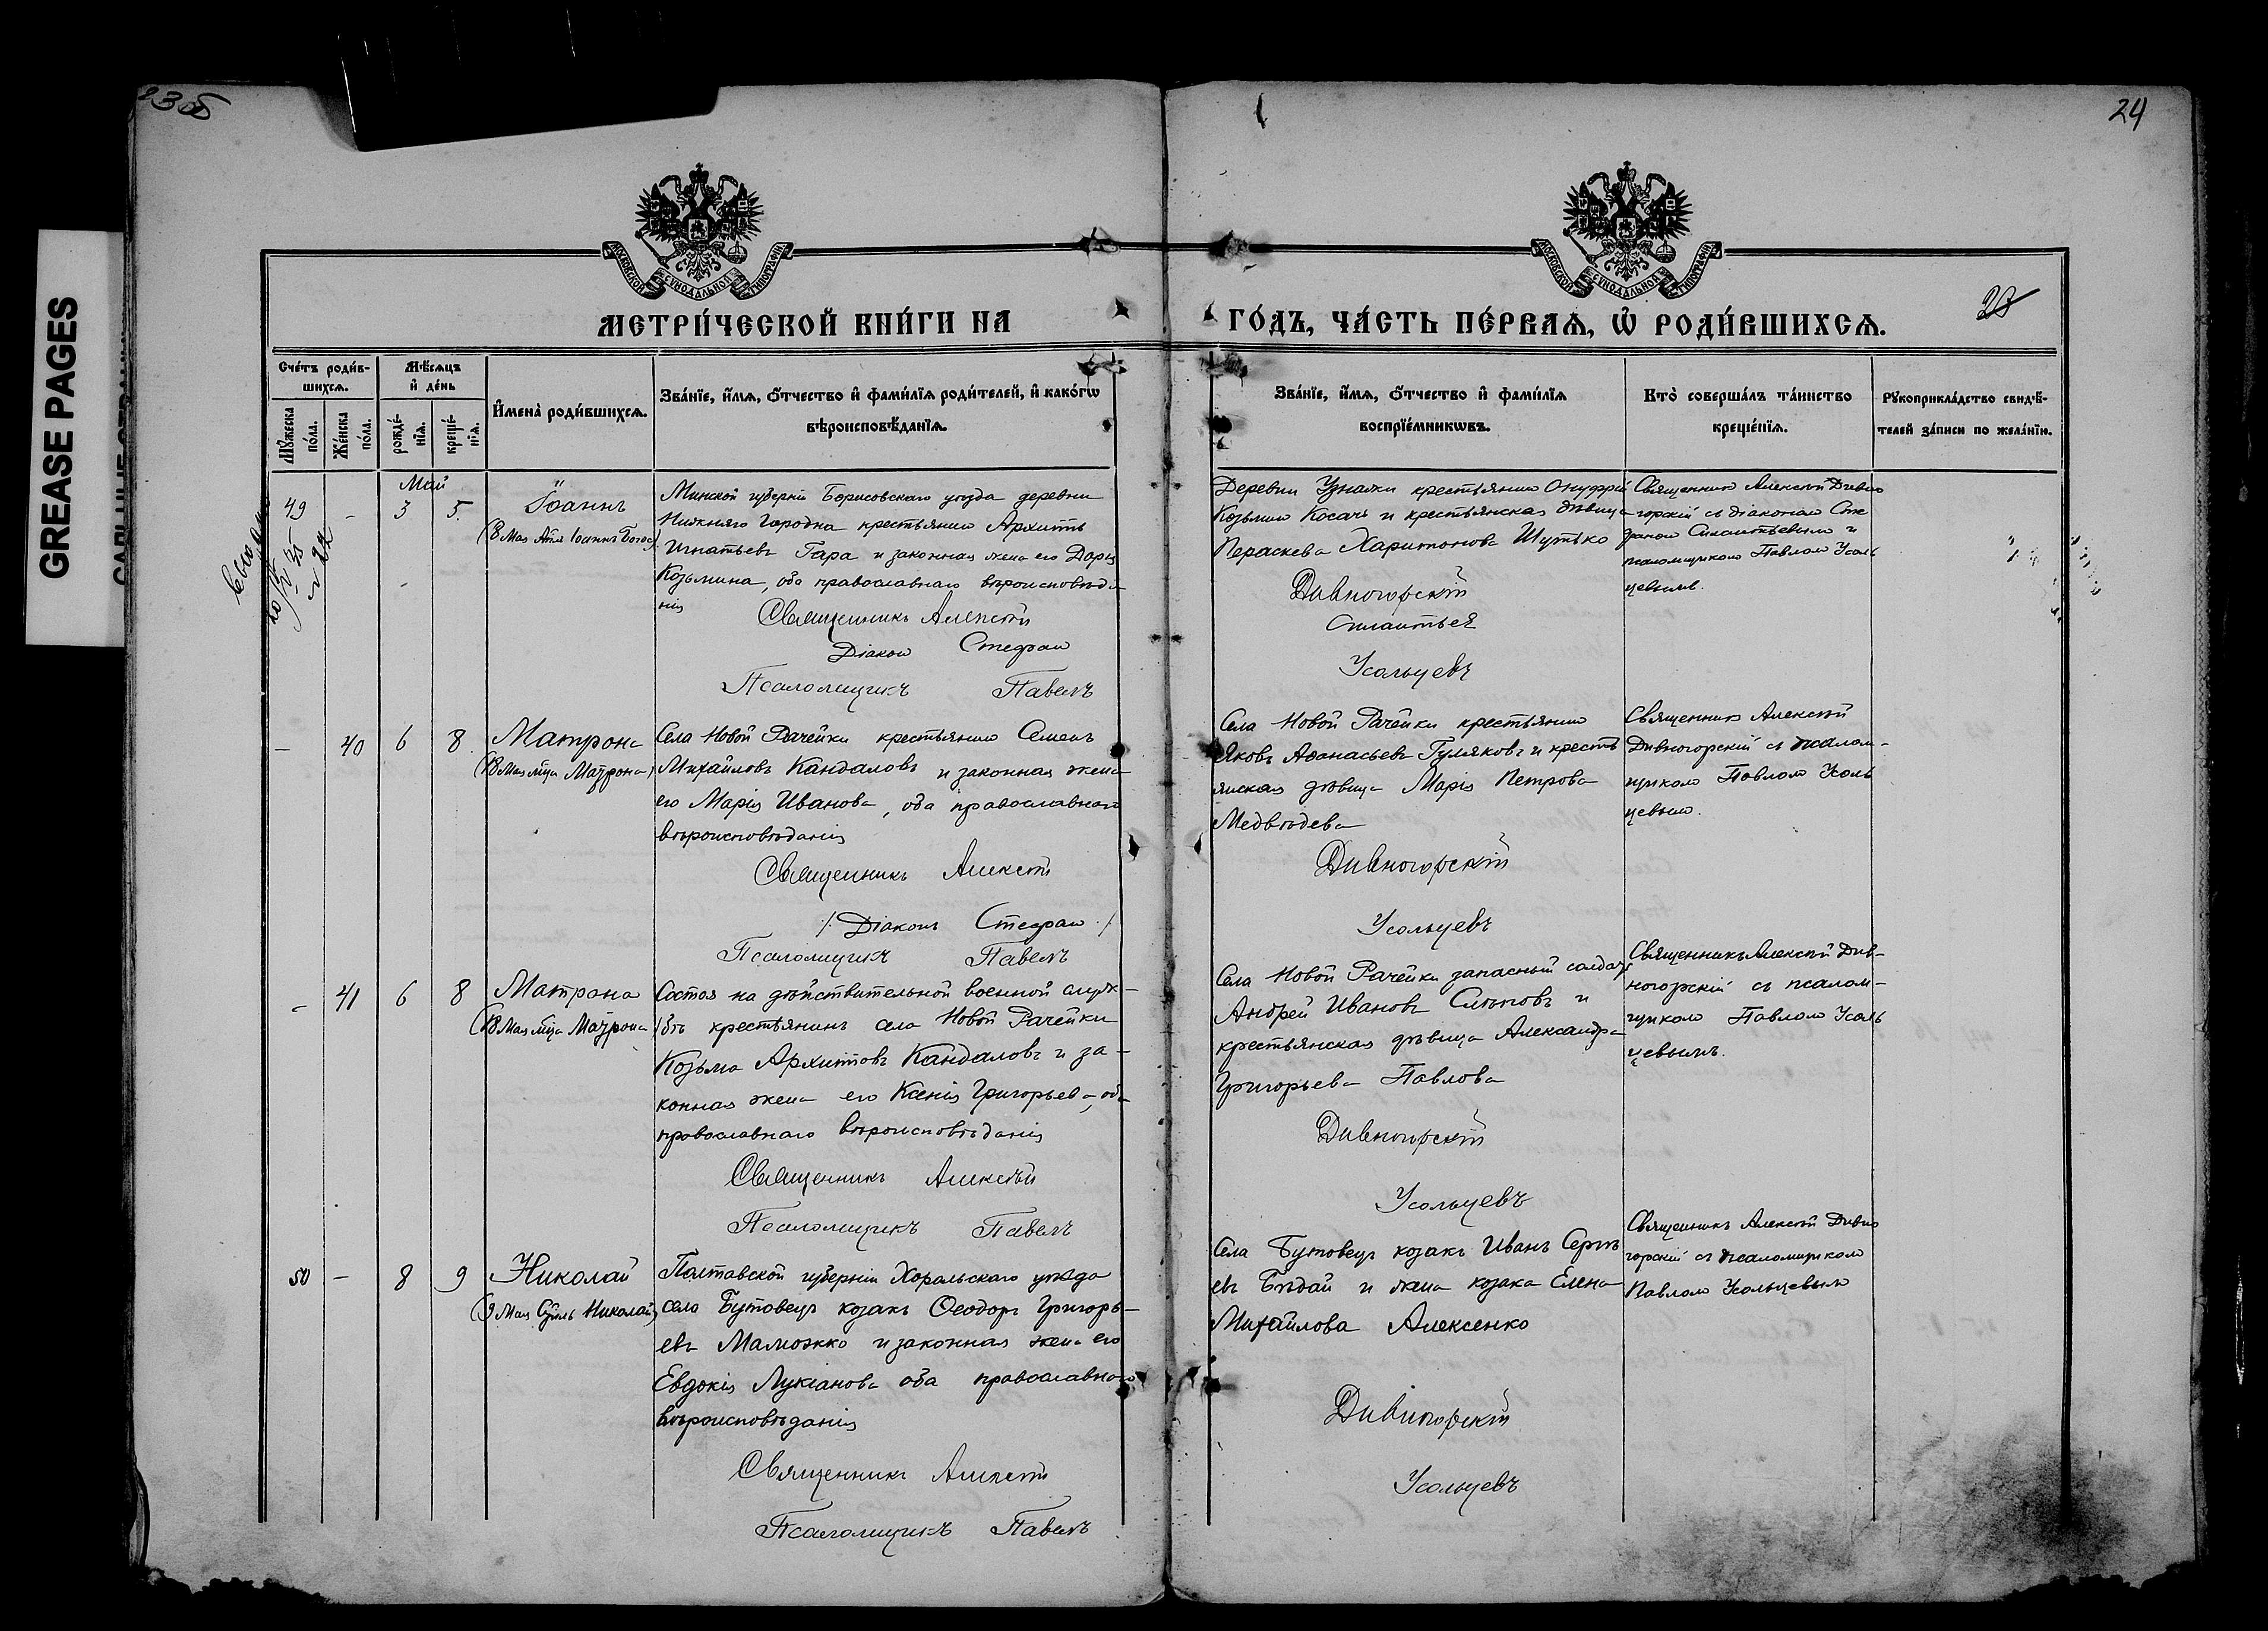 23об
24
GREASE PAGES
МОСКОВСКОЙ СѴНОДАЛЬНОЙ ТИПОГРАФІИ
МОСКОВСКОЙ СѴНОДАЛЬНОЙ ТИПОГРАФІИ
МЕТРИ́ЧЕСКОЙ КНИ́ГИ НА
ГО́ДЪ, ЧА́СТЬ ПЕ́РВАѦ, Ѡ҆ РОДИ́ВШИХСѦ.
23
Сче́тъ роди́в-
шихсѧ.
Мѣ́сѧцъ
и҆ де́нь
И҆мена̀ роди́вшихсѧ.
Зва́нїе, и҆́мѧ, ѻ҆́тчество и҆ фами́лїѧ роди́телей, и҆ како́гѡ
вѣроисповѣ́данїѧ.
Мꙋ́жеска
по́ла.
Же́нска
по́ла.
рожде́-
нїѧ.
креще́-
нїѧ.
Зва́нїе, и҆́мѧ, ѻ҆́тчество и҆ фами́лїѧ
воспрїе́мникѡвъ.
Кто̀ соверша́лъ та́инство
креще́нїѧ.
Рꙋкоприкла́дство свидѣ́-
телей за́писи по жела́нїю.
Май
49 - 3 5.
Іоаннъ
(8 Мая Ап̃ла Іоанна Богос.)
Минской губерніи Борисовскаго уѣзда деревни
Нижняго Городна крестьянинъ Архиппъ
Игнатьевъ Гара и законная жена его Дарья
Козьмина, оба православнаго вѣроисповѣда-
нія
Священникъ Алексѣй
Діаконъ Стефан
Псаломщикъ Павелъ
Деревни Узналки крестьянинъ Онуфрій
Козьминъ Косачъ и крестьянская дѣвица
Пераскева Харитонова Шутько
Дивногорскій
Силантьев
Усольцевъ
Священникъ Алексѣй Дивно
горскій съ діакономъ Сте
фаномъ Силантьевымъ и
псаломщикомъ Павломъ Усоль
цевымъ.
— 40 6 8.
Матрона
(18 Мая м̃ца Матрона)
Села Новой Рачейки крестьянинъ Семенъ
Михайловъ Кандаловъ и законная жена
его Марія Иванова, оба православнаго
вѣроисповѣданія
Священникъ Алексѣй
/. Діаконъ Стефан ./
Псаломщикъ Павелъ
Села Новой Рачейки крестьянинъ
Яковъ Аѳанасьевъ Гуляковъ и кресть
янская дѣвица Марія Петрова
Медвѣдева
Дивногорскій
Усольцевъ
Священникъ Алексѣй
Дивногорскій съ псалом-
щикомъ Павломъ Усоль
цевымъ.
- 41 6 8
Матрона
(18 Мая м̃ца Матрона)
Состоя на дѣйствительной военной служ-
бѣ крестьянинъ села Новой Рачейки
Козьма Архиповъ Кандаловъ и за-
конная жена его Ксенія Григорьева, оба
православнаго вѣроисповѣданія
Священникъ Алексѣй
Псаломщикъ Павелъ
Села Новой Рачейки запасный солдатъ
Андрей Ивановъ Слѣповъ и
крестьянская дѣвица Александра
Григорьева Павлова
Дивногорскій
Усольцевъ
Священникъ Алексѣй Див-
ногорскій съ псалом-
щикомъ Павломъ Усоль
цевымъ.
50 - 8 9
Николай
(9 Мая С̃тль Николай)
Полтавской губерніи Хорольскаго уѣзда
села Бутовецъ козакъ Ѳеодоръ Григорь-
евъ Маможко и законная жена его
Евдокія Лукіанова оба православнаго
вѣроисповѣданія
Священникъ Алексѣй
Псаломщикъ Павелъ
Села Бутовецъ козакъ Иванъ Сергѣ
евъ Бѣдай и жена козака Елена
Михайлова Алексенко
Дивногорскій
Усольцевъ
Священникъ Алексѣй Дивно
горскій съ псаломщикомъ
Павломъ Усольцевымъ